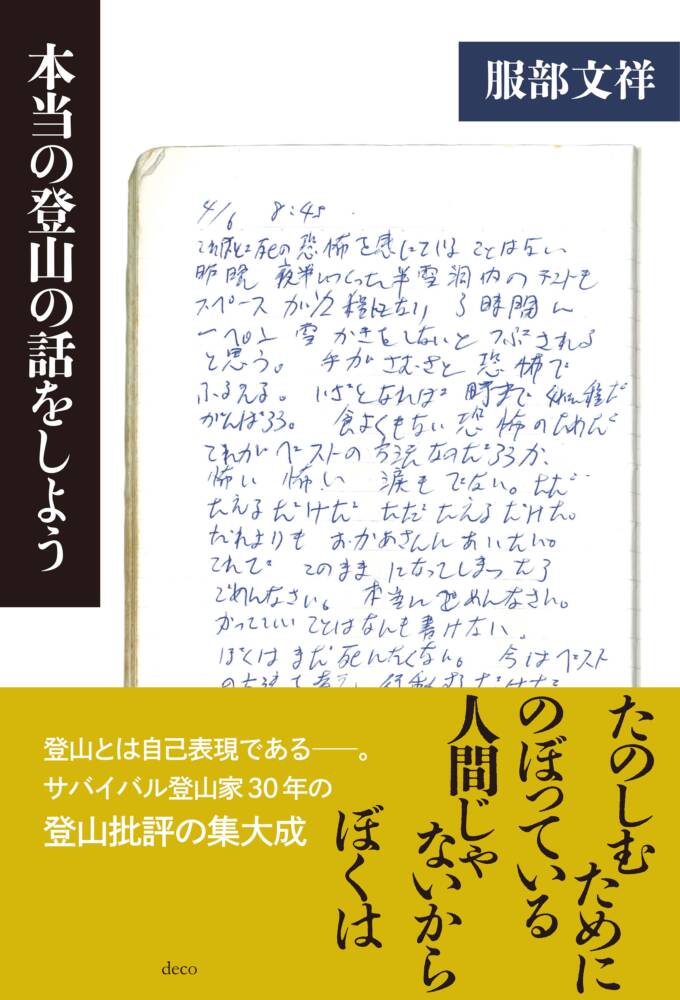 本当の登山の話をしよう
服部文祥
4/6 8:45
これほど死の恐怖を感じていることはない
昨晩 夜半につくった半雪洞内のテントも
スペースが1/2程になり 3時間に
一ペん 雪かきをしないとつぶされる
と思う。 手がさむさと恐怖で
ふるえる。 いざとなれば
がんばろう。 食よくもない 恐怖のためだ
これがベストの方法なのだろうか、
怖い 怖い 涙もでない。ただ
たえるだけだ ただたえるだけだ。
だれよりも おかあさんにあいたい。
これで このままになってしまったら
ごめんなさい。 本当にごめんなさい。
かっていいことはなんも書けない。
ぼくはまだ死にたくない。 今はベスト
たのしむために
のぼっている
人間じゃないから
ぼくは
登山とは自己表現である――。
サバイバル登山家30年の
登山批評の集大成
deco